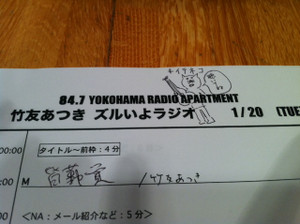 チイサネコ
84.7 YOKOHAMA RADIO APARTMENT
竹友あつき ズルいよラジオ 1/20 (TUE
00:00
タイトル〜前枠:4分
M /竹友あつき
03:00
<NA:メール紹介など:5分>